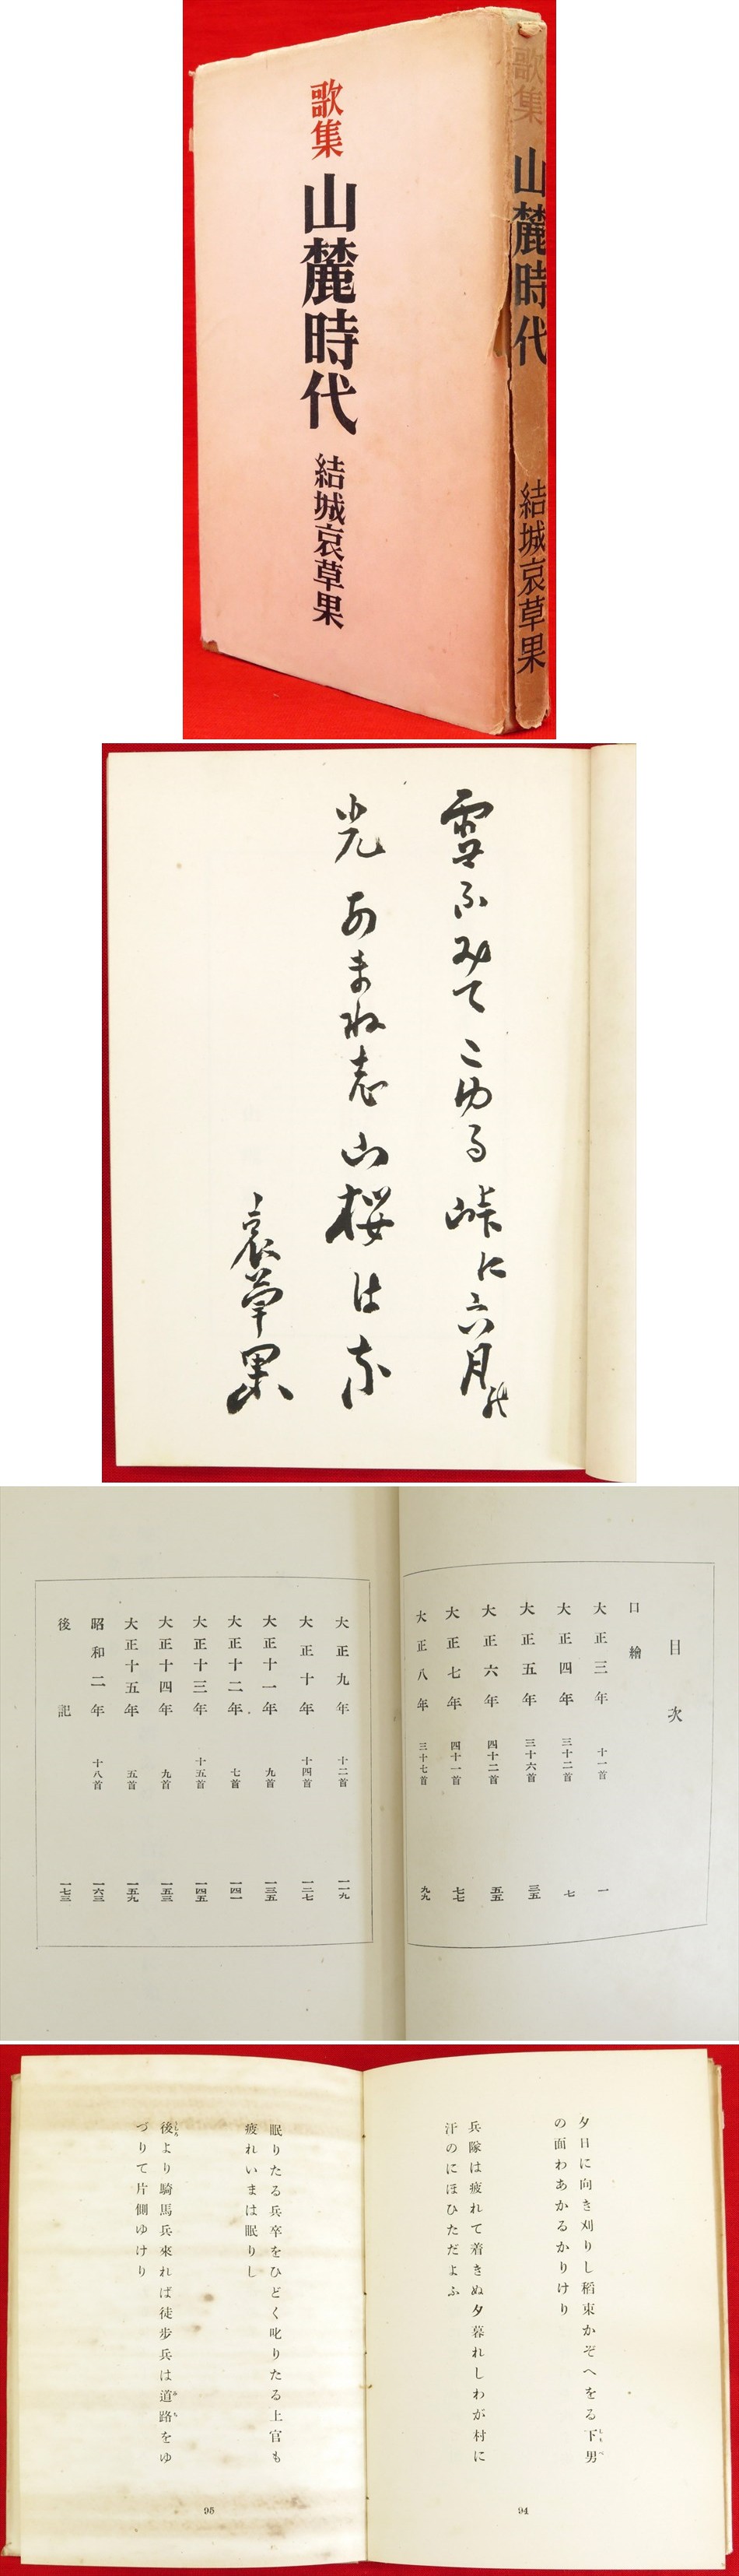 歌集 山麓時代 結城哀草果
歌集 山麓時代 結城哀草果
雪ふみてこゆる峠に六月の
光あまねし山桜はな
哀草果
目次
口繪
大正三年 十一首 一
大正四年 三十二首 七
大正五年 三十六首 三五
大正六年 四十二首 五五
大正七年 四十一首 七七
大正八年 三十七首 九九
大正九年 十二首 一一九
大正十年 十四首 一二七
大正十一年 九首 一三五
大正十二年 七首 一四一
大正十三年 十五首 一四五
大正十四年 九首 一五三
大正十五年 五首 一五九
昭和二年 十八首 一六三
後記 一七三
夕日に向き刈りし稻束かぞへをる下男
の面わあかるかりけり
兵隊は疲れて着きぬ夕暮れしわが村に
汗のにほひただよふ
94
眠りたる兵卒をひどく叱りたる上官も
疲れいまは眠りし
後より騎馬兵來れば徒歩兵は道路をゆ
づりて片側ゆけり
95